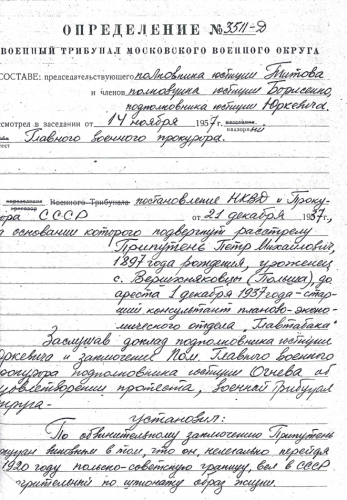 ОПРЕДЕЛЕНИЕ №3511-Д
ВОЕННЫЙ ТРИБУНАЛ МОСКОВСКОГО ВОЕННОГО ОКРУГА
СОСТАВЕ: председательствующего полковника юстиции Титова
и членов полковника юстиции Борисенко,
подполковника юстиции Юркевича.
ссмотрел в заседании от 14 ноября 1957 г.
Главного военного прокурора.
Военного Трибунала постановление НКВД и Проку-
ора СССР от 21 декабря 1937 г.,
а основании которого подвергнут расстрелу
Припутень Петр Михайлович,
1897 года рождения, уроженец
с. (Польша), до
ареста 1 декабря 1937 года - стар-
ший консультант планово-эконо-
мического отдела "Главтабака"
Заслушав доклад подполковника юстиции
Юркевича и заключение пом. Главного военного
рокурора подполковника юстиции Огнева об
удовлетворении протеста, военный трибунал
округа-
установил:
По обвинительному заключению Припутень
виновным в том, что он, нелегально перейдя
1920 году польско-советскую границу, вел в СССР
по шпионажу образ жизни.